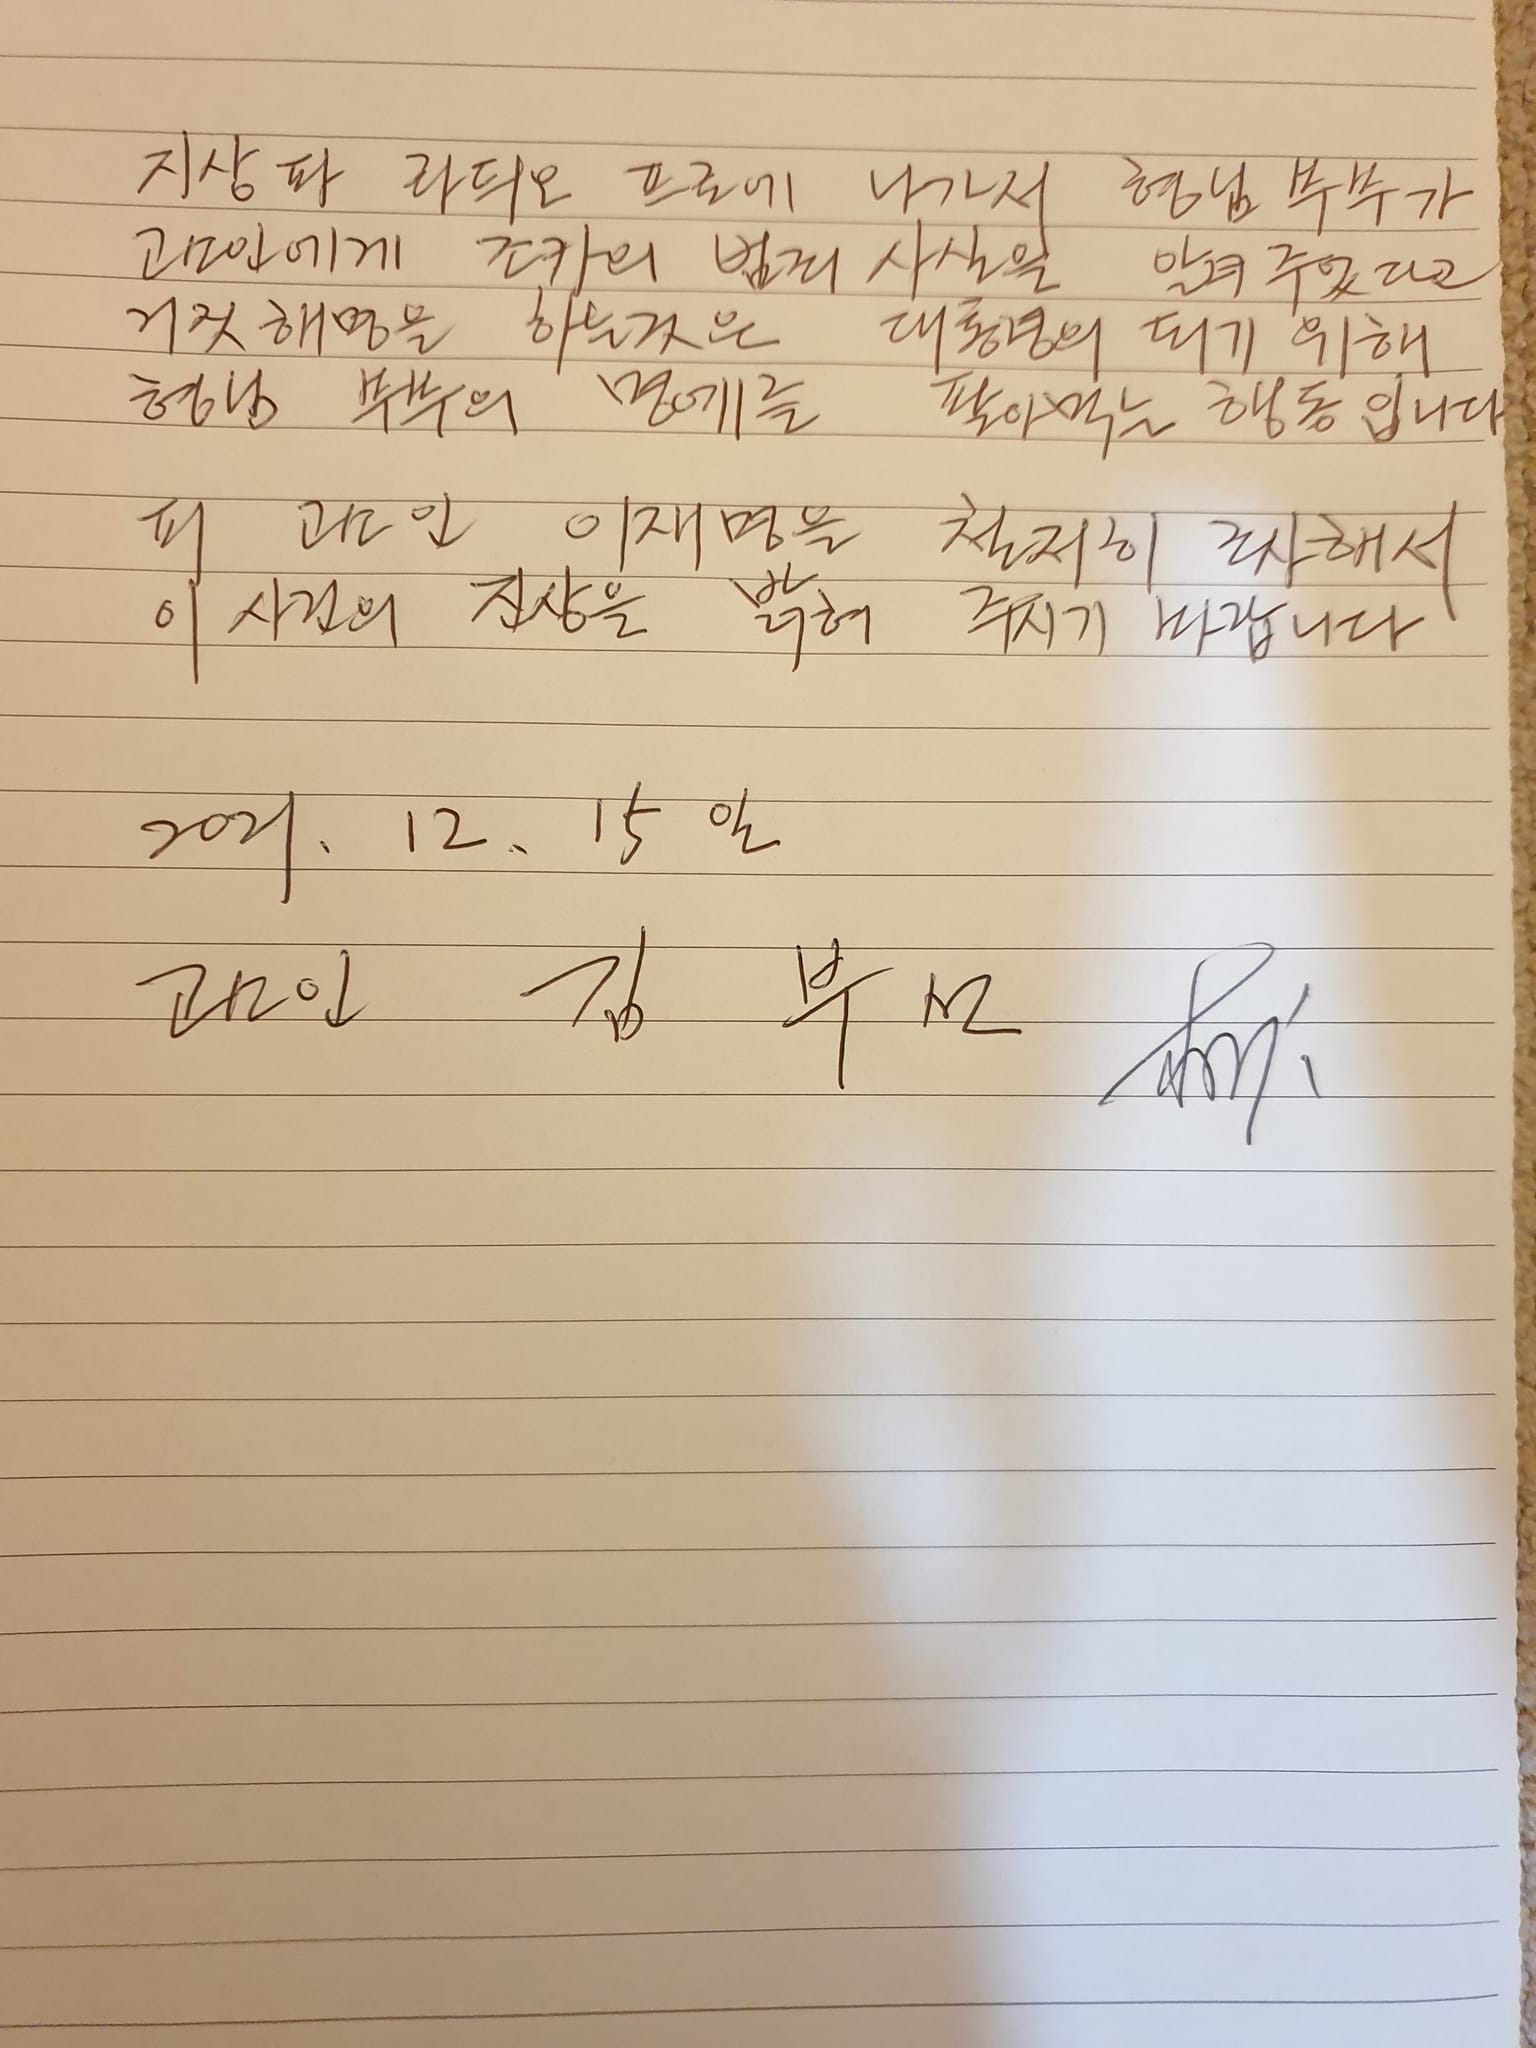 지상파 라듸오 프로에 나가서 형님 부부가
고소인에게 조카의 범죄 사실을 알려 주었다고
거짓 해명을 하는것은 대통령의 되기 위해
형님 부부의 명예를 팔아먹는 행동입니다
피 고소인 이재명을 철저히 조사해서
이 사건의 진상을 밝혀 주시기 바랍니다
2021. 12. 15일
고소인 김 부선